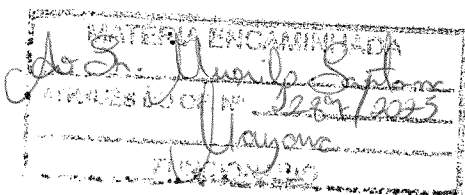 MATÉRIA ENCAMINHADA
Ao Sr. Murilo Santana
ATRAVÉS DO OF. Nº 1289/2025
Mayana
FUNCIONÁRIO